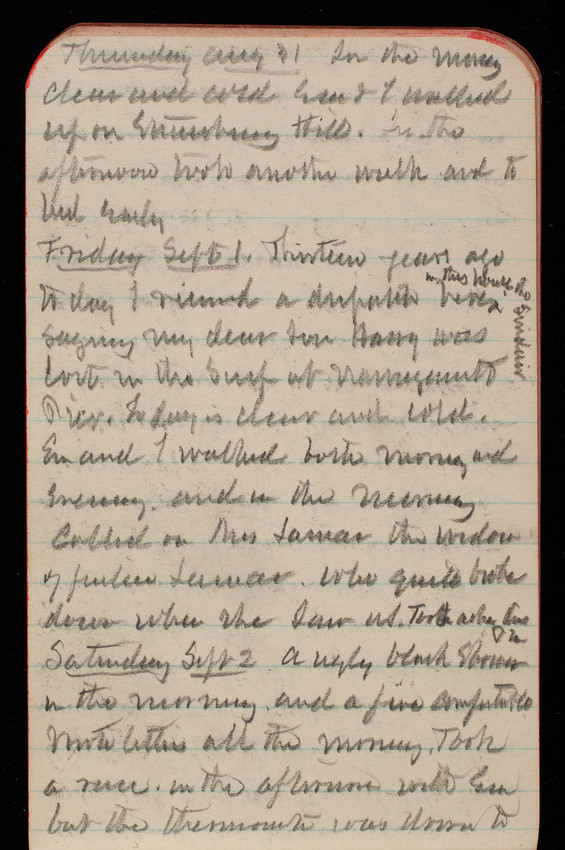 Thursday Aug 31 In the morng
clear and cold Em & I walked
up on Strawberry Hill. In the
afternoon took another walk and to
bed early
Friday Sept 1. Thirteen years ago
to day I received a dispatch here
in this house the
Sinclair
saying my dear son Harry was
lost in the Surf at Narragansett
Pier. To day is clear and cold.
Em and I walked both morng and
Evening. and in the morning
Called on Mrs Lamar the widow
of Justice Lamar. who quite broke
down when she saw us. Took a
Saturday Sept 2 A ugly bleak
in the morning and a fire comfortable
Wrote letters all the morning. Took
a in the afternoon with Em
but the thermomete was down to